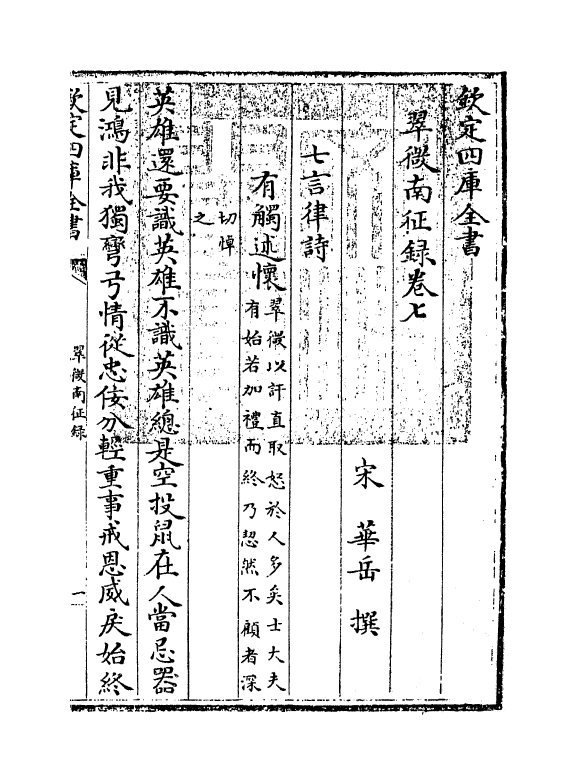 欽定四庫全書
翠微南征録卷七
宋　華岳　撰
七言律詩
有觸述懷翠微以訐直取怒於人多矣士大夫
有始若加禮而終乃恝然不顧者深
切悼
之
英雄還要識英雄不識英雄總是空投鼠在人當忌器
見鴻非我獨彎弓情從忠佞分輕重事戒恩威戾始終
欽定四庫全書
翠微南征録
一